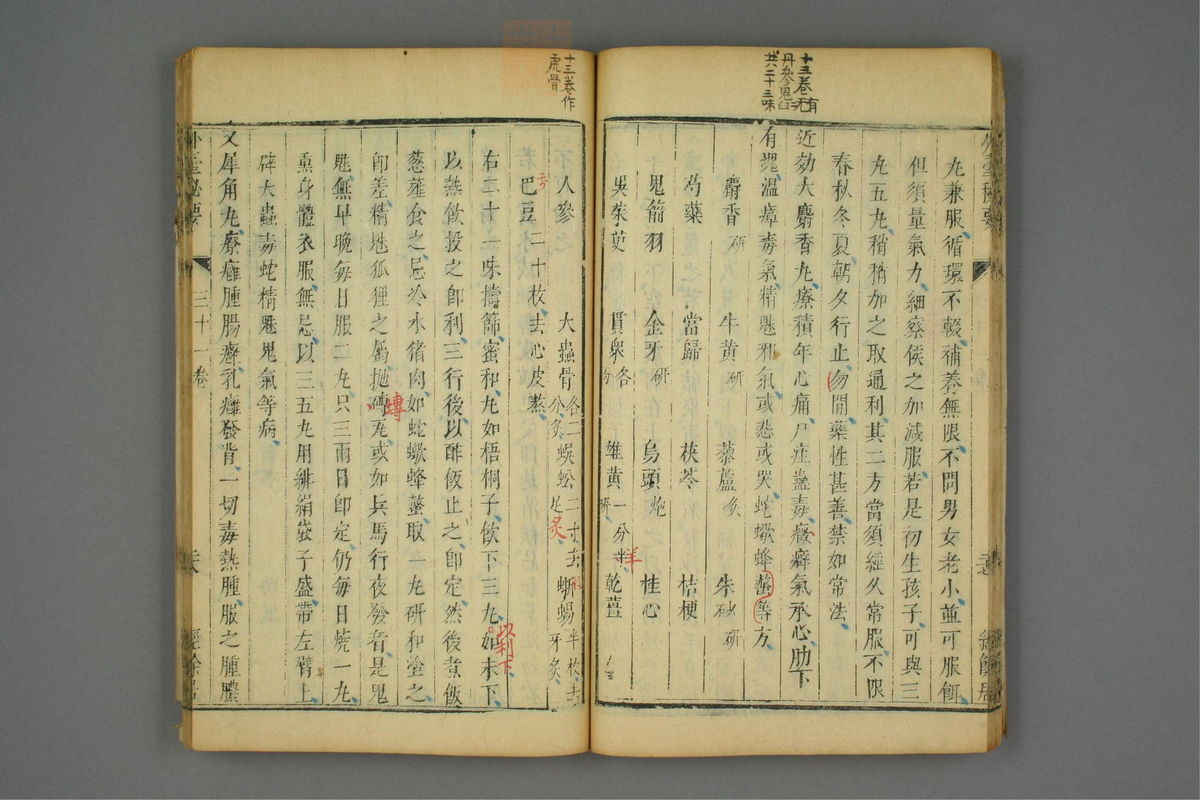 十三卷有
丹參鬼臼无
共二十三味
丸兼服循環不輟補養無限不問男女老小並可服餌
但須量氣力細察候之加減服若是初生孩子可與三
丸五丸稍稍加之取通利其二方當須經久常服不限
春秋冬夏朝夕行止勿間藥性甚善禁如常法
近効大麝香丸療積年心痛尸疰蠱毒癥癖氣承心肋下
有塊溫瘴毒氣精魅邪氣或悲或哭蛇蠍蜂螫等方
麝香研 牛黃研 藜蘆炙 朱砂研
芎藭 當歸 茯苓 桔梗
鬼箭羽 金牙研 烏頭炮 桂心
吳茱萸 貫衆各分 雄黃一分研 羊 乾薑
十三卷作
虎骨
人參 大蟲骨各二分炙 蜈蚣二寸去足炙 蜥蜴半枚去牙炙
巴豆二十枚去心皮熬
右二十一味擣篩蜜和丸如梧桐子飲下三丸如未下
以利下
以熱飲投之卽利三行後以酢飯止之卽定然後煮飯
葱薤食之忌冷水猪肉如蛇蠍蜂螫取一丸研和塗之
卽差精魅狐狸之屬抛磚瓦或如兵馬行夜發者是鬼
魅無早晚每日服二丸只三兩日卽定仍每日燒一丸
熏身體衣服無忌以三五丸用緋絹袋子盛帶左臂上
辟大蟲毒蛇精魅鬼氣等病
又犀角丸療癰腫腸癰乳癰發背一切毒熱腫服之腫膿
外臺秘要
三十一卷
經餘居